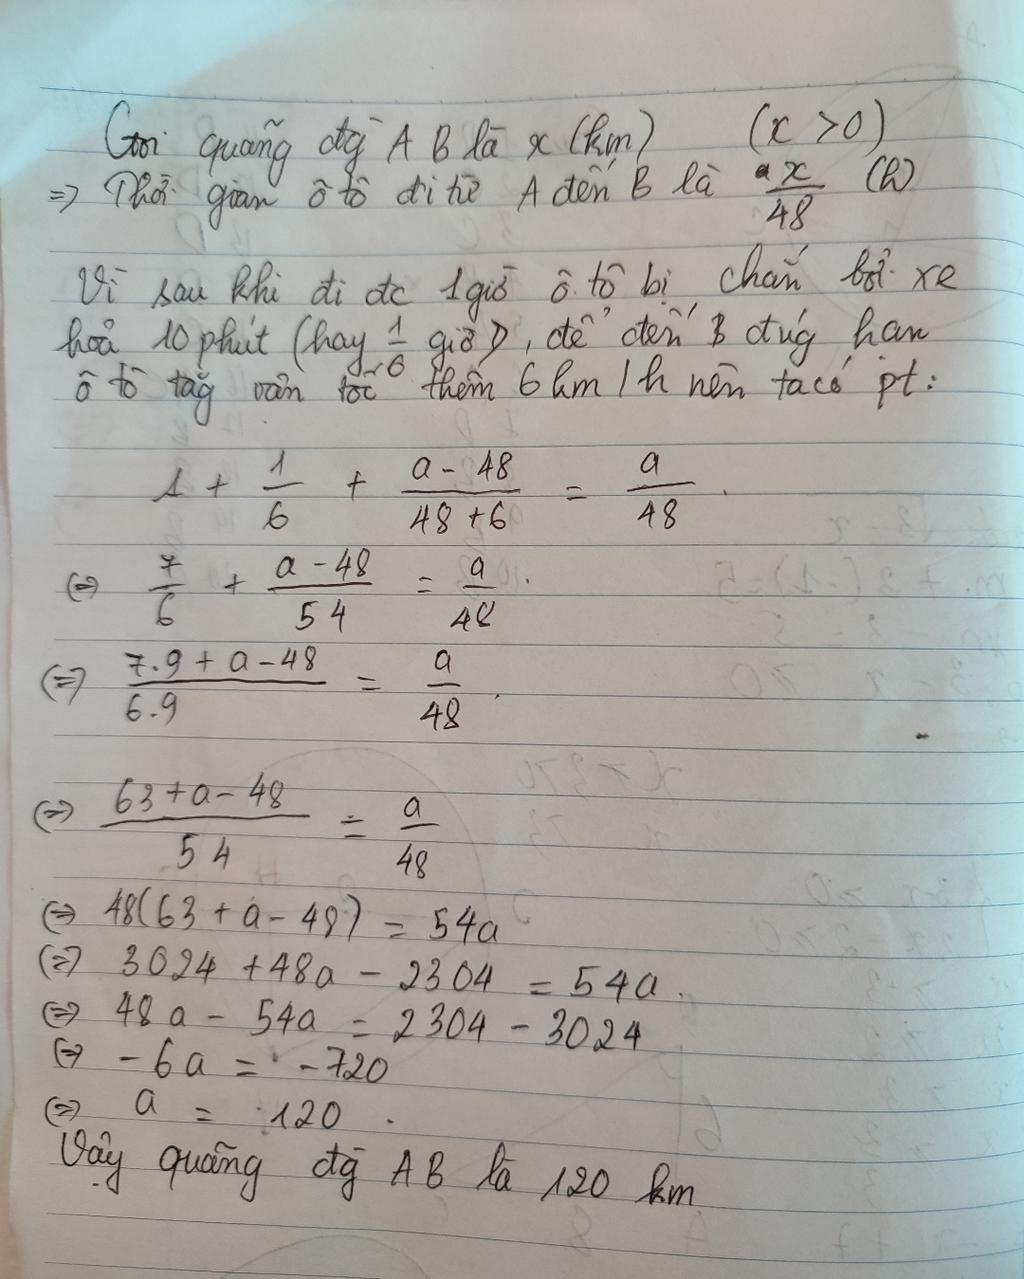 Gọi quãng đg A B là x (km) (x > 0)
=> Thời gian ô tô đi từ A đến B là x/48 (h)
Vì sau khi đi đc 1 giờ ô tô bị chắn bởi xe
hoả 10 phút (hay 1/6 giờ), để đến B đúg hạn
ô tô tăg vận tốc thêm 6 km/h nên ta có pt:
1 + 1/6 + (a - 48)/(48 + 6) = a/48
(=) 7/6 + (a - 48)/54 = a/48
(=) (7.9 + a - 48)/(6.9) = a/48
(=) (63 + a - 48)/54 = a/48
(=) 48(63 + a - 48) = 54a
(=) 3024 + 48a - 2304 = 54a
(=) 48a - 54a = 2304 - 3024
(=) - 6a = -720
(=) a = 120
Vậy quãng đg A B là 120 km